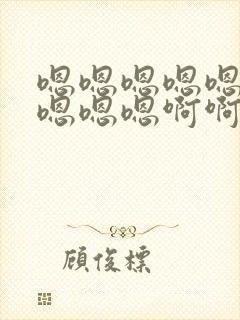 嗯嗯嗯嗯嗯
嗯嗯嗯啊啊
顾俊标